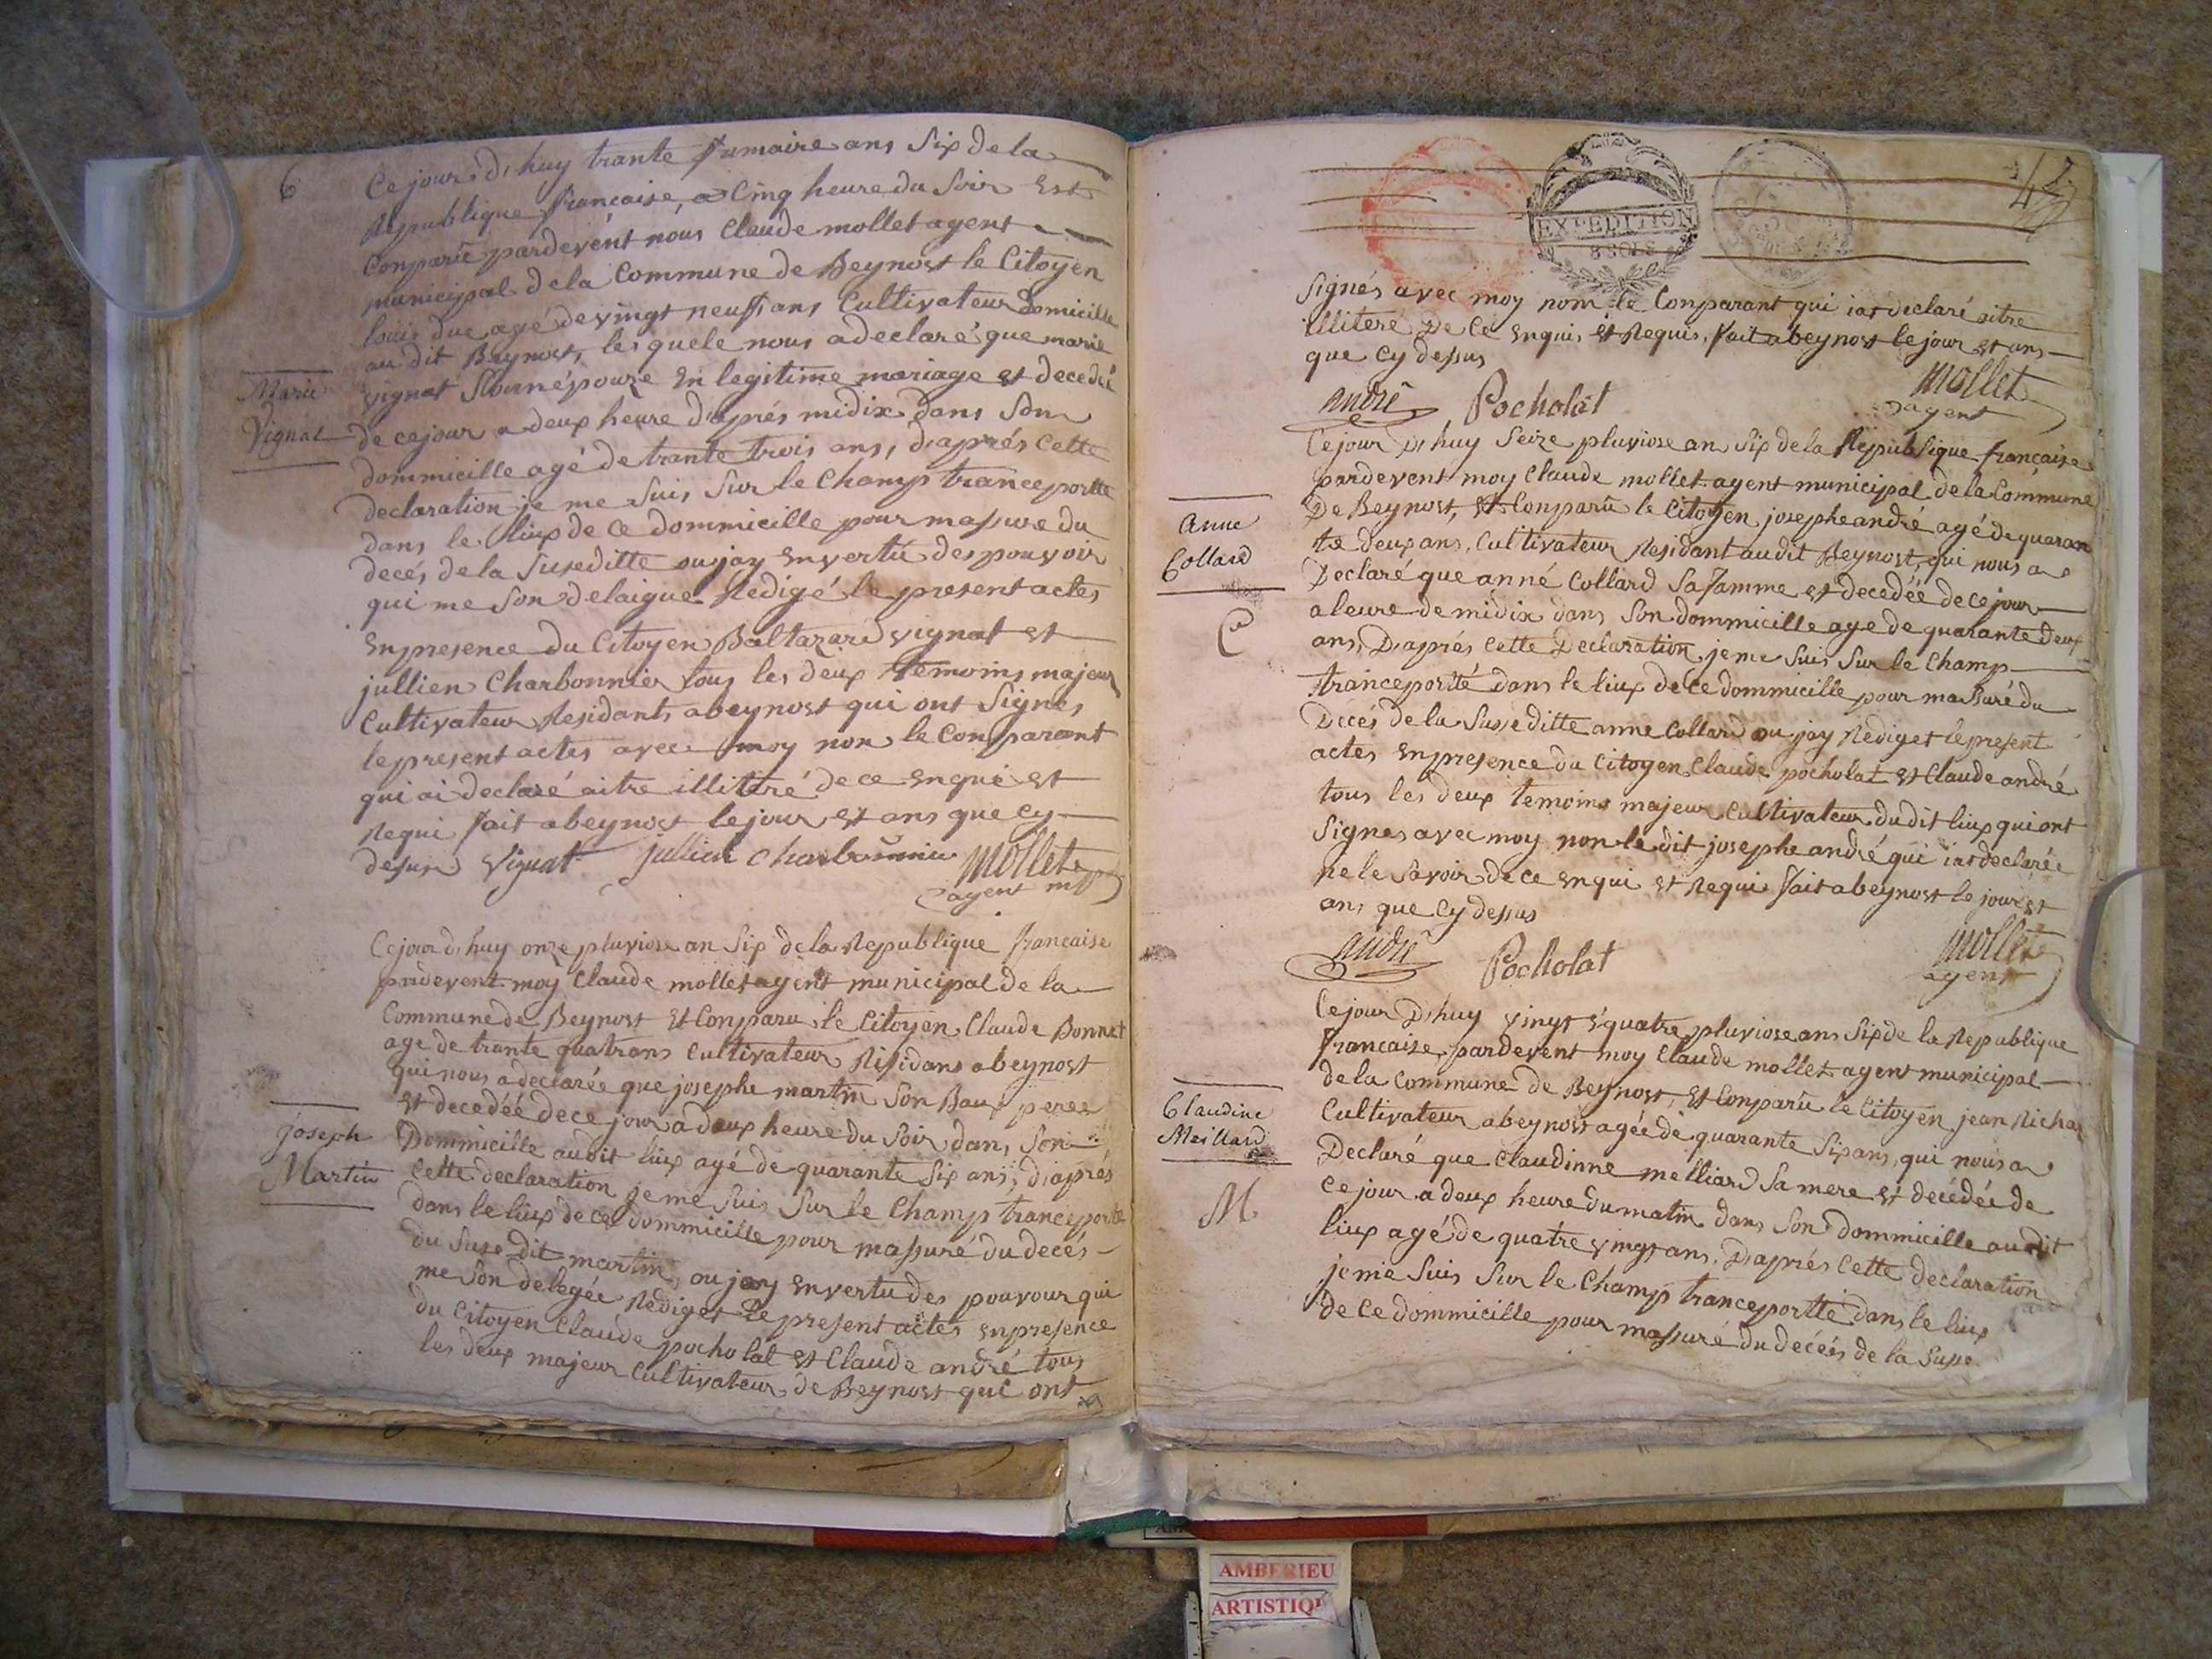 6
Ce jour d'huy trante fumaire ans Six de la
Republique francaise, a Cinq heure du Soir Est
Conparu pardevent nous Claude mollet agent
municipal de la Commune de Beynost le Citoyen
louis duc agé de vingt neuf ans Cultivateur Domicille
au dit Beynost, lesquele nous a declaré que marie
vignat Son népouze En legitime mariage et decedéé
de ce jour a deux heure d'aprés midix dans Son
dommicille agé de trante trois ans, d'aprés Cette
declaration je me Suis Sur le Champ tranceportte
dans le liux de Ce dommicille pour massure du
decés de la Suseditte ou jay En vertu des pouvoir
qui me Son delaigue Redigé le present actes
En presence du Citoyen Baltazard vignat et
jullien Charbonnier tous les deux temoins majeur
Cultivateur Residants a beynost qui ont Signés
le present actes avec moy non le Conparant
qui ai declaré aitre illiteré de ce Enqui et
Requi fait a beynost le jour et ans que Cy
desus Vignat jullien Charbonnier Mollet
agent mp
Marie
Vignat
Ce jour d'huy onze pluviose an Six de la Republique francaise
pardevent moy Claude mollet agent municipal de la
Commune de Beynost Et Conparu le Citoyen Claude Bonnet
age de trante quatrans Cultivateur Residans a beynost
qui nous a declarée que josephe martin Son Baux peres
et decedéé de ce jour a deux heure du Soir dans Son
Dommicille audit liux agé de quarante Six ans, d'aprés
Cette declaration je me Suis Sur le Champ tranceporte
dans le liux de ce dommicille pour massuré du decés
du Suse dit martin, ou jay En vertu des pouvour qui
me Son delegée Rediget le present actes En presence
du Citoyen Claude pocholat et Claude andré tous
les deux majeur Cultivateur de Beynost qui ont
joseph
Martin
42
EXPEDITION
8 SOLS
Signés avec moy nom le Conparant qui ias declaré aitre
illiteré De Ce Enquis et Requis, fait a beynost le jour et ans
que Cy dessus
andré Pocholat Mollet
agent
Ce jour D'huy Seize pluviose an Six de la Republique francaise
pardevent moy Claude mollet agent municipal de la Commune
De Beynost, Et Conparu le Citoyen josephe andré agé de quaran
te deux ans, Cultivateur Residant audit Beynost, qui nous a
Declaré que anné Collard Sa famme et decedée de ce jour
a leure de midix dans Son dommicille age de quarante deux
ans, D'aprés Cette Declaration je me Suis Sur le Champ
tranceportté dans le liux de Ce dommicille pour massuré du
Decés de la Susseditte anne Collard ou jay Rediget le present
actes En presence du Citoyen Claude pocholat et Claude andré
tous les deux temoins majeur Cultivateur dudit liux qui ont
Signes avec moy non le dit josephe andré qui ias declarée
ne le Savoir de ce Enqui et Requi fait a beynost le jour et
ans que Cy dessus
andré Pocholat Mollet
agent
Anne
Collard
C
Ce jour D'huy vingt Equatre pluviose ans Six de la Republique
francaise pardevent moy Claude mollet agent municipal
de la Commune de Beynost, Et Conparu le Citoyen jean Richar
Cultivateur a beynost agée de quarante Six ans, qui nous a
Declaré que Claudinne melliard Sa mere et decédée de
Ce jour a deux heure du matin dans Son dommicille audit
liux agé de quatre vingt ans, D'aprés Cette declaration
je me Suis Sur le Champ tranceportte dans le liux
de Ce dommicille pour massuré du decéés de la Susse
Claudine
Meillard
M
AMBERIEU
ARTISTIQU